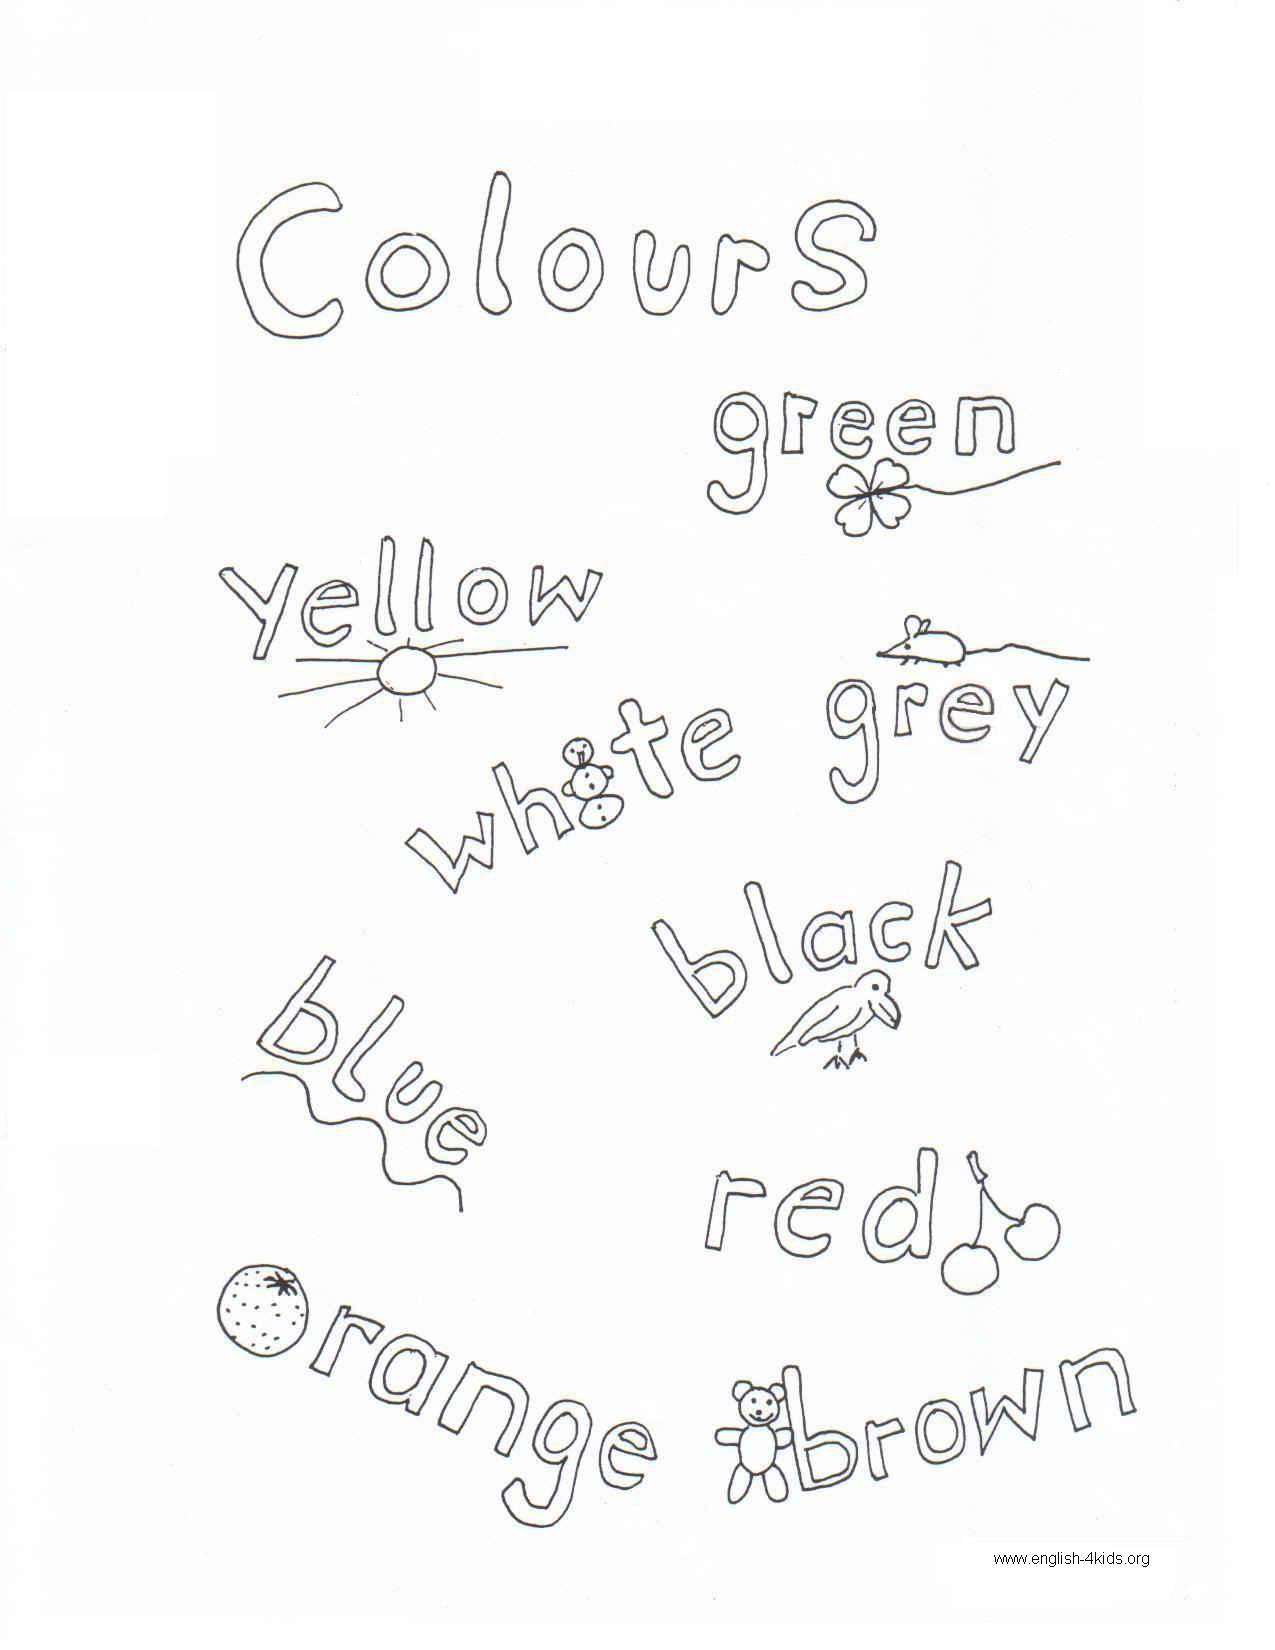 Colours
green
yellow
grey
white
black
blue
red
orange
brown
www.english-4kids.org